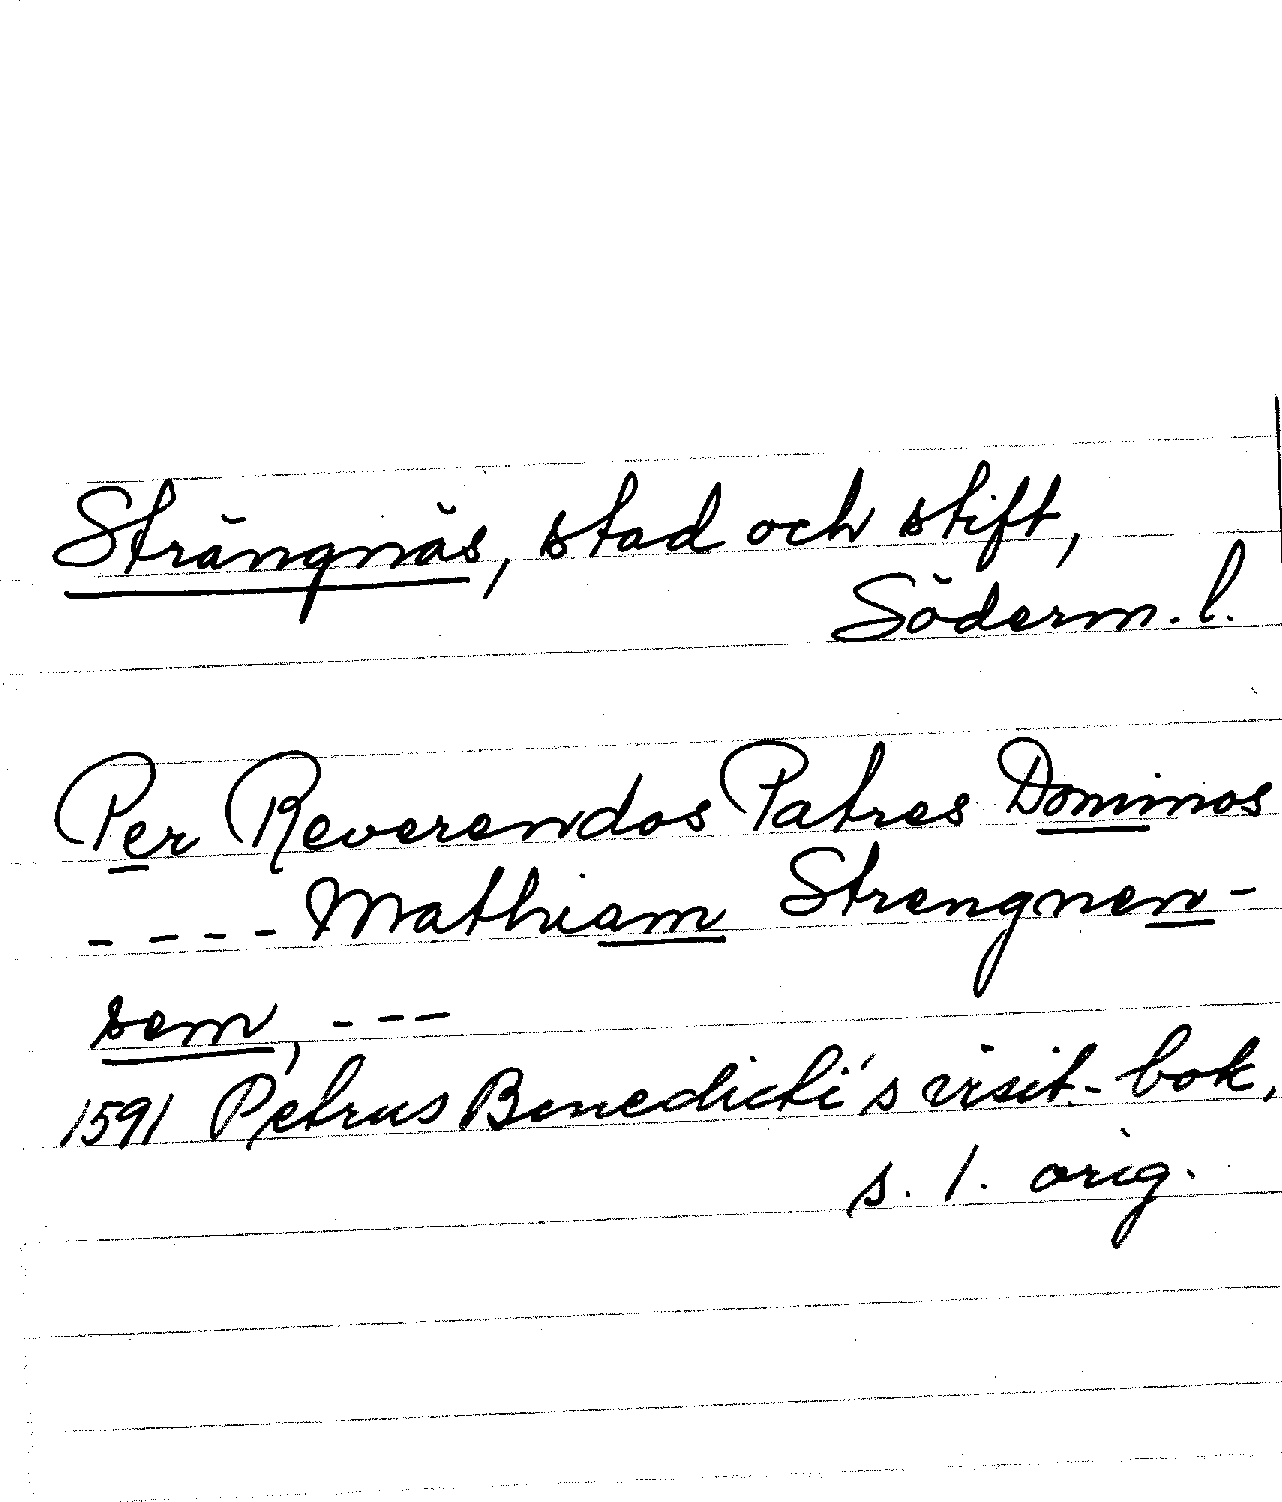 Strängnäs, stad och stift,
Söderm. l.
Per Reverendos Patres Dominos
- - - - Mathiam Strengnen-
sem, - - -
1591 Petrus Benedicti's visit.-bok,
s. 1. orig.